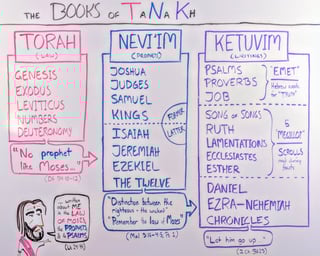 THE BOOKS OF TaNaKh
TORAH
(LAW)
GENESIS
EXODUS
LEVITICUS
NUMBERS
DEUTERONOMY
"No prophet
like Moses..."
(Dt 34:10-12)
NEVI'IM
(PROPHETS)
JOSHUA
JUDGES
SAMUEL
KINGS
FORMER
LATTER
ISAIAH
JEREMIAH
EZEKIEL
THE TWELVE
"Distinction between the
righteous - the wicked"
"Remember the law of Moses"
KETUVIM
(WRITINGS)
PSALMS
PROVERBS
JOB
"EMET"
Hebrew word
for "TRUTH"
SONG OF SONGS
RUTH
LAMENTATIONS
ECCLESIASTES
ESTHER
5
"MEGILLOT"
SCROLLS
DANIEL
EZRA-NEHEMIAH
CHRONICLES
"Let him go up..."
...written
about ME
in the LAW
OF MOSES,
the PROPHETS
& the PSALMS